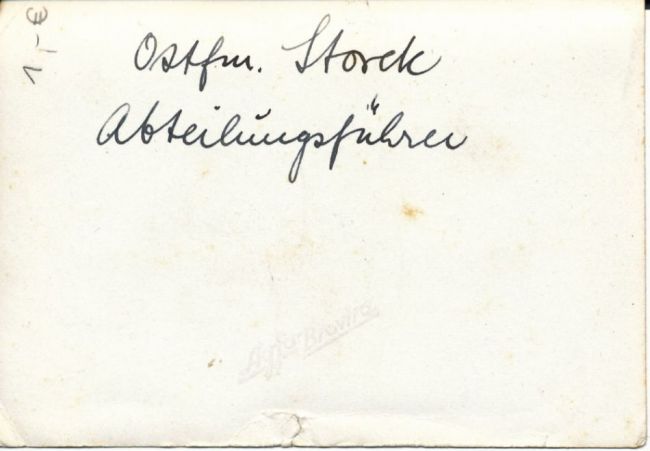 1,-€
Ostfm. Storck
Abteilungsführer
Agfa Brovira